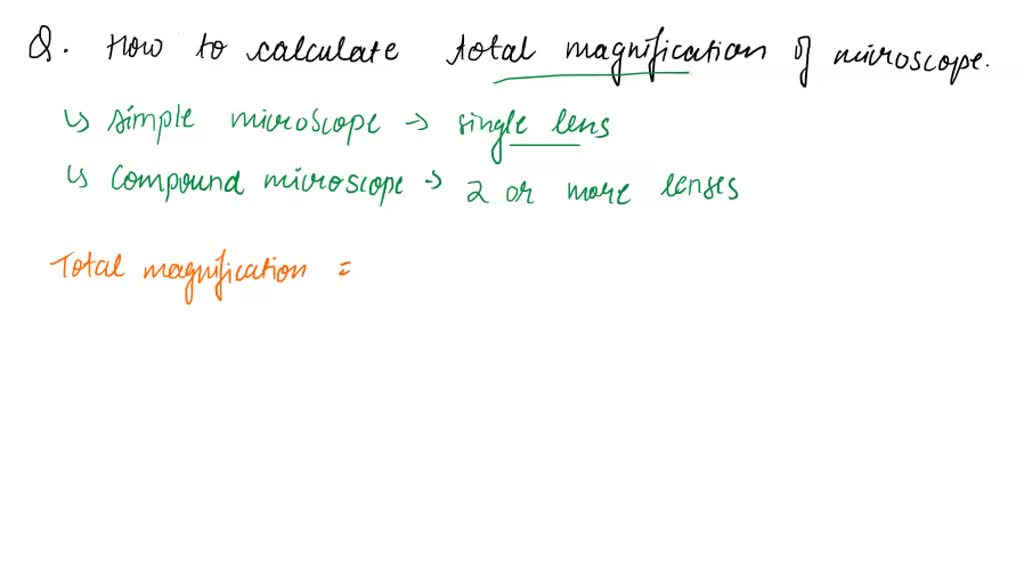 Q. How to calculate total magnification of microscope.
↳ simple microscope → single lens
↳ compound microscope → 2 or more lenses
Total magnification =